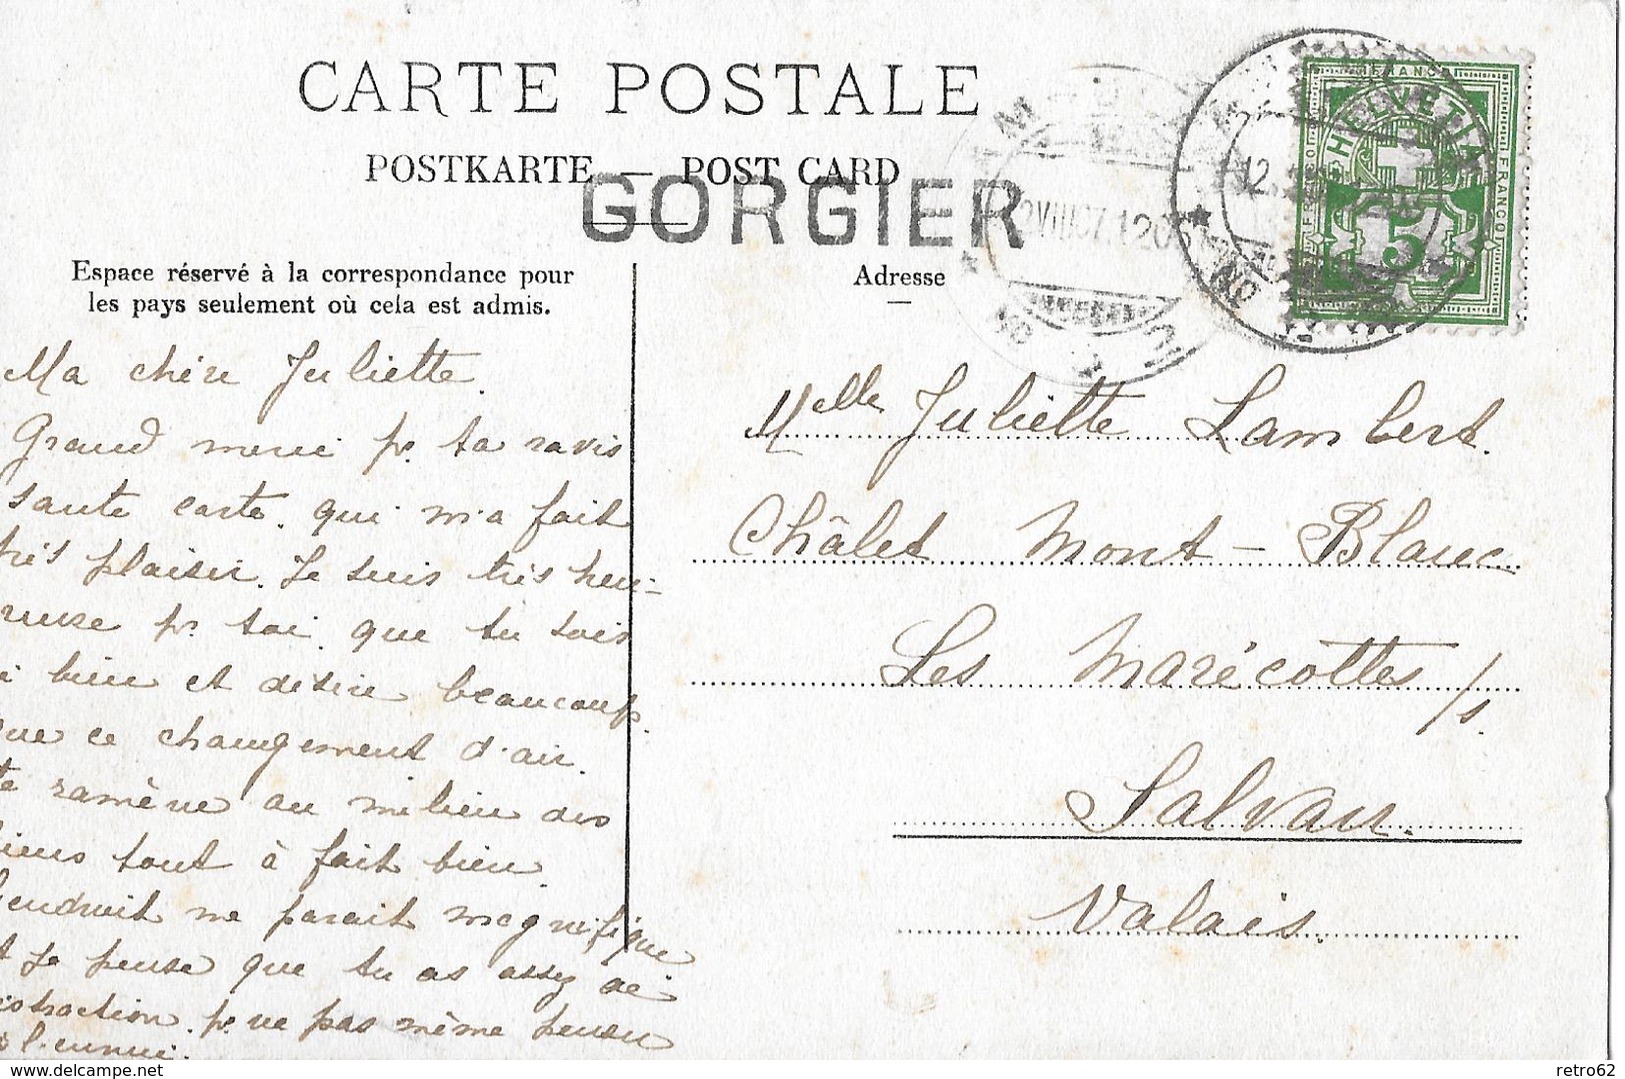 CARTE POSTALE
POSTKARTE — POST CARD
GORGIER
Espace réservé à la correspondance pour
les pays seulement où cela est admis.
Adresse
HELVETIA
FRANCO
FRANCO
5
12
VIII.07.12
Ma chère Juliette.
Grand merci pr. ta ravis
sante carte. qui m'a fait
très plaisir. Je suis très heu=
reuse pr. toi que tu sois
si bien et désire beaucoup
que ce changement d'air.
te ramène au milieu des
tiens tout à fait bien.
L'endroit me parait magnifique
et je pense que tu as assez de
distraction pr. ne pas même penser
à l'ennui.
Mlle Juliette Lambert.
Châlet Mont-Blanc
Les Marécottes /s.
Salvan.
Valais.
delcampe.net
retro62